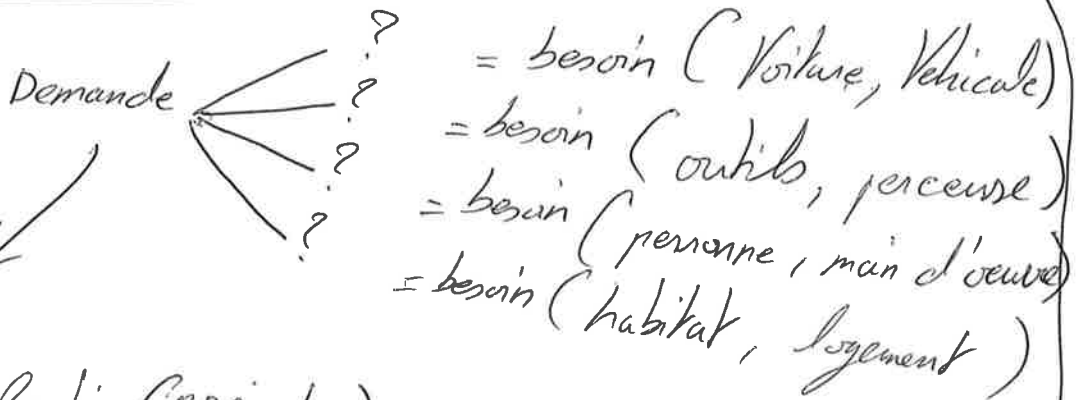 Demande
? = besoin ( Voiture, Vehicule)
? = besoin ( outils, perceuse )
? = besoin ( personne, main d'oeuvre)
? = besoin ( habitat, logement )